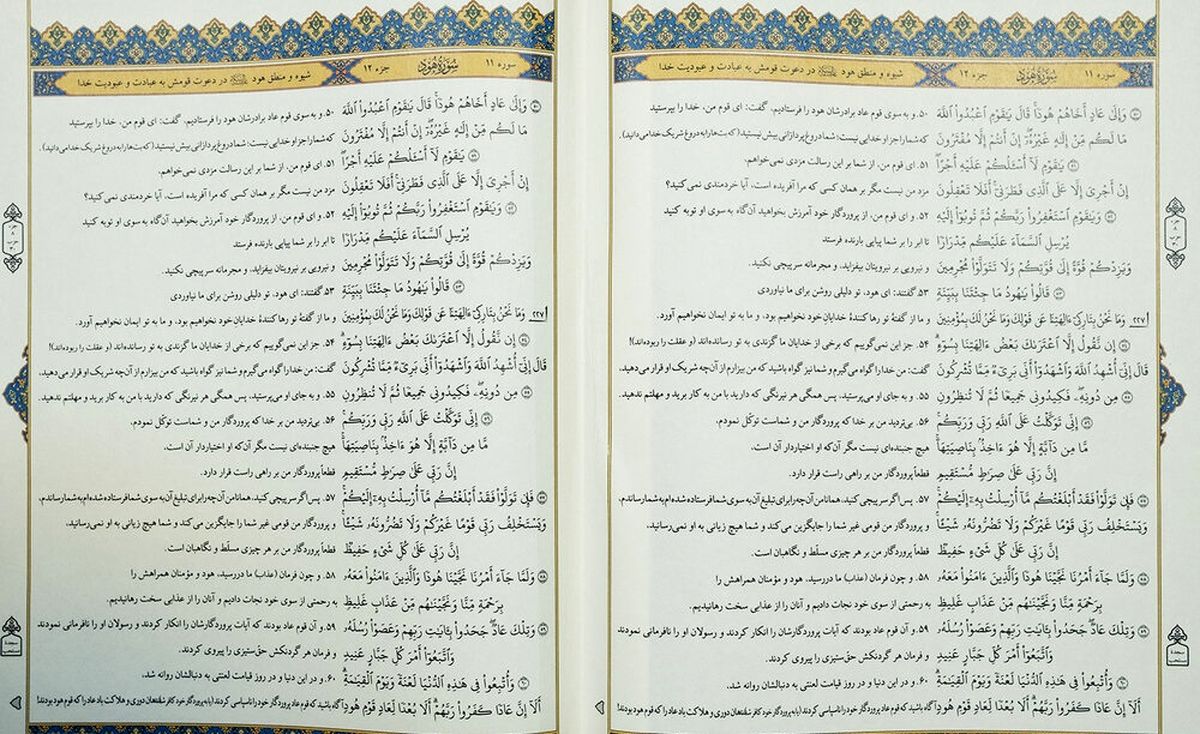 سوره ۱۱ سُورَةُ هُود جزء ۱۲ شیوه و منطق هود در دعوت قومش به عبادت و عبودیت خدا
وَإِلَىٰ عَادٍ أَخَاهُمْ هُودًا ۚ قَالَ يَٰقَوْمِ ٱعْبُدُوا۟ ٱللَّهَ ۵۰. و به سوی قوم عاد برادرشان هود را فرستادیم، گفت: ای قوم من، خدا را بپرستید
مَا لَكُم مِّنْ إِلَٰهٍ غَيْرُهُۥٓ ۖ إِنْ أَنتُمْ إِلَّا مُفْتَرُونَ که شما را جز او خدایی نیست؛ شما دروغ‌پردازانی بیش نیستید (که بت‌ها را به دروغ شریک خدا می‌دانید).
يَٰقَوْمِ لَآ أَسْـَٔلُكُمْ عَلَيْهِ أَجْرًا ۖ ۵۱. ای قوم من، از شما بر این رسالت مزدی نمی‌خواهم،
إِنْ أَجْرِىَ إِلَّا عَلَى ٱلَّذِى فَطَرَنِىٓ ۚ أَفَلَا تَعْقِلُونَ مزد من نیست مگر بر همان کسی که مرا آفریده است، آیا خردمندی نمی‌کنید؟
وَيَٰقَوْمِ ٱسْتَغْفِرُوا۟ رَبَّكُمْ ثُمَّ تُوبُوٓا۟ إِلَيْهِ ۵۲. و ای قوم من، از پروردگار خود آمرزش بخواهید آن‌گاه به سوی او توبه کنید
يُرْسِلِ ٱلسَّمَآءَ عَلَيْكُم مِّدْرَارًا تا ابر را بر شما پیاپی بارنده فرستد
وَيَزِدْكُمْ قُوَّةً إِلَىٰ قُوَّتِكُمْ وَلَا تَتَوَلَّوْا۟ مُجْرِمِينَ و نیرویی بر نیرویتان بیفزاید، و مجرمانه سرپیچی نکنید.
قَالُوا۟ يَٰهُودُ مَا جِئْتَنَا بِبَيِّنَةٍ ۵۳. گفتند: ای هود، تو دلیلی روشن برای ما نیاوردی
۲۲۷ وَمَا نَحْنُ بِتَارِكِىٓ ءَالِهَتِنَا عَن قَوْلِكَ وَمَا نَحْنُ لَكَ بِمُؤْمِنِينَ و ما از گفتهٔ تو رها کنندهٔ خدایان خود نخواهیم بود، و ما به تو ایمان نخواهیم آورد.
إِن نَّقُولُ إِلَّا ٱعْتَرَىٰكَ بَعْضُ ءَالِهَتِنَا بِسُوٓءٍ ۗ ۵۴. جز این نمی‌گوییم که برخی از خدایان ما گزندی به تو رسانده‌اند (و عقلت را ربوده‌اند)!
قَالَ إِنِّىٓ أُشْهِدُ ٱللَّهَ وَٱشْهَدُوٓا۟ أَنِّى بَرِىٓءٌ مِّمَّا تُشْرِكُونَ گفت: من خدا را گواه می‌گیرم و شما نیز گواه باشید که من بیزارم از آن‌چه شریک او قرار می‌دهید،
مِن دُونِهِۦ ۖ فَكِيدُونِى جَمِيعًا ثُمَّ لَا تُنظِرُونِ ۵۵. و به جای او می‌پرستید. پس همگی هر نیرنگی که دارید با من به کار برید و مهلتم ندهید.
إِنِّى تَوَكَّلْتُ عَلَى ٱللَّهِ رَبِّى وَرَبِّكُم ۚ ۵۶. بی‌تردید من بر خدا که پروردگار من و شماست توکل نمودم،
مَّا مِن دَآبَّةٍ إِلَّا هُوَ ءَاخِذٌۢ بِنَاصِيَتِهَآ ۚ هیچ جنبنده‌ای نیست مگر آن‌که او اختیاردار آن است،
إِنَّ رَبِّى عَلَىٰ صِرَٰطٍ مُّسْتَقِيمٍ قطعاً پروردگار من بر راهی راست قرار دارد.
فَإِن تَوَلَّوْا۟ فَقَدْ أَبْلَغْتُكُم مَّآ أُرْسِلْتُ بِهِۦٓ إِلَيْكُمْ ۚ ۵۷. پس اگر سرپیچی کنید، همانا من آن‌چه را برای تبلیغ آن به سوی شما فرستاده شده‌ام به شما رساندم،
وَيَسْتَخْلِفُ رَبِّى قَوْمًا غَيْرَكُمْ وَلَا تَضُرُّونَهُۥ شَيْـًٔا ۚ و پروردگار من قومی غیر شما را جایگزین می‌کند و شما هیچ زیانی به او نمی‌رسانید،
إِنَّ رَبِّى عَلَىٰ كُلِّ شَىْءٍ حَفِيظٌ قطعاً پروردگار من بر هر چیزی مسلّط و نگاهبان است.
وَلَمَّا جَآءَ أَمْرُنَا نَجَّيْنَا هُودًا وَٱلَّذِينَ ءَامَنُوا۟ مَعَهُۥ ۵۸. و چون فرمان (عذاب) ما دررسید، هود و مؤمنان همراهش را
بِرَحْمَةٍ مِّنَّا وَنَجَّيْنَٰهُم مِّنْ عَذَابٍ غَلِيظٍ به رحمتی از سوی خود نجات دادیم و آنان را از عذابی سخت رهانیدیم.
وَتِلْكَ عَادٌ ۖ جَحَدُوا۟ بِـَٔايَٰتِ رَبِّهِمْ وَعَصَوْا۟ رُسُلَهُۥ ۵۹. و آن قوم عاد بودند که آیات پروردگارشان را انکار کردند و رسولان او را نافرمانی نمودند
وَٱتَّبَعُوٓا۟ أَمْرَ كُلِّ جَبَّارٍ عَنِيدٍ و فرمان هر گردنکش حق‌ستیزی را پیروی کردند.
وَأُتْبِعُوا۟ فِى هَٰذِهِ ٱلدُّنْيَا لَعْنَةً وَيَوْمَ ٱلْقِيَٰمَةِ ۗ ۶۰. و در این دنیا و در روز قیامت لعنتی به دنبالشان روانه شد.
أَلَآ إِنَّ عَادًا كَفَرُوا۟ رَبَّهُمْ ۗ أَلَا بُعْدًا لِّعَادٍ قَوْمِ هُودٍ آگاه باشید که قوم عاد پروردگار خود را ناسپاسی کردند (یا به پروردگار خود کافر شدند) هان دوری و هلاکت باد عاد را که قوم هود بودند!
سوره ۱۱ سُورَةُ هُود جزء ۱۲ شیوه و منطق هود در دعوت قومش به عبادت و عبودیت خدا
وَإِلَىٰ عَادٍ أَخَاهُمْ هُودًا ۚ قَالَ يَٰقَوْمِ ٱعْبُدُوا۟ ٱللَّهَ ۵۰. و به سوی قوم عاد برادرشان هود را فرستادیم، گفت: ای قوم من، خدا را بپرستید
مَا لَكُم مِّنْ إِلَٰهٍ غَيْرُهُۥٓ ۖ إِنْ أَنتُمْ إِلَّا مُفْتَرُونَ که شما را جز او خدایی نیست؛ شما دروغ‌پردازانی بیش نیستید (که بت‌ها را به دروغ شریک خدا می‌دانید).
يَٰقَوْمِ لَآ أَسْـَٔلُكُمْ عَلَيْهِ أَجْرًا ۖ ۵۱. ای قوم من، از شما بر این رسالت مزدی نمی‌خواهم،
إِنْ أَجْرِىَ إِلَّا عَلَى ٱلَّذِى فَطَرَنِىٓ ۚ أَفَلَا تَعْقِلُونَ مزد من نیست مگر بر همان کسی که مرا آفریده است، آیا خردمندی نمی‌کنید؟
وَيَٰقَوْمِ ٱسْتَغْفِرُوا۟ رَبَّكُمْ ثُمَّ تُوبُوٓا۟ إِلَيْهِ ۵۲. و ای قوم من، از پروردگار خود آمرزش بخواهید آن‌گاه به سوی او توبه کنید
يُرْسِلِ ٱلسَّمَآءَ عَلَيْكُم مِّدْرَارًا تا ابر را بر شما پیاپی بارنده فرستد
وَيَزِدْكُمْ قُوَّةً إِلَىٰ قُوَّتِكُمْ وَلَا تَتَوَلَّوْا۟ مُجْرِمِينَ و نیرویی بر نیرویتان بیفزاید، و مجرمانه سرپیچی نکنید.
قَالُوا۟ يَٰهُودُ مَا جِئْتَنَا بِبَيِّنَةٍ ۵۳. گفتند: ای هود، تو دلیلی روشن برای ما نیاوردی
۲۲۷ وَمَا نَحْنُ بِتَارِكِىٓ ءَالِهَتِنَا عَن قَوْلِكَ وَمَا نَحْنُ لَكَ بِمُؤْمِنِينَ و ما از گفتهٔ تو رها کنندهٔ خدایان خود نخواهیم بود، و ما به تو ایمان نخواهیم آورد.
إِن نَّقُولُ إِلَّا ٱعْتَرَىٰكَ بَعْضُ ءَالِهَتِنَا بِسُوٓءٍ ۗ ۵۴. جز این نمی‌گوییم که برخی از خدایان ما گزندی به تو رسانده‌اند (و عقلت را ربوده‌اند)!
قَالَ إِنِّىٓ أُشْهِدُ ٱللَّهَ وَٱشْهَدُوٓا۟ أَنِّى بَرِىٓءٌ مِّمَّا تُشْرِكُونَ گفت: من خدا را گواه می‌گیرم و شما نیز گواه باشید که من بیزارم از آن‌چه شریک او قرار می‌دهید،
مِن دُونِهِۦ ۖ فَكِيدُونِى جَمِيعًا ثُمَّ لَا تُنظِرُونِ ۵۵. و به جای او می‌پرستید. پس همگی هر نیرنگی که دارید با من به کار برید و مهلتم ندهید.
إِنِّى تَوَكَّلْتُ عَلَى ٱللَّهِ رَبِّى وَرَبِّكُم ۚ ۵۶. بی‌تردید من بر خدا که پروردگار من و شماست توکل نمودم،
مَّا مِن دَآبَّةٍ إِلَّا هُوَ ءَاخِذٌۢ بِنَاصِيَتِهَآ ۚ هیچ جنبنده‌ای نیست مگر آن‌که او اختیاردار آن است،
إِنَّ رَبِّى عَلَىٰ صِرَٰطٍ مُّسْتَقِيمٍ قطعاً پروردگار من بر راهی راست قرار دارد.
فَإِن تَوَلَّوْا۟ فَقَدْ أَبْلَغْتُكُم مَّآ أُرْسِلْتُ بِهِۦٓ إِلَيْكُمْ ۚ ۵۷. پس اگر سرپیچی کنید، همانا من آن‌چه را برای تبلیغ آن به سوی شما فرستاده شده‌ام به شما رساندم،
وَيَسْتَخْلِفُ رَبِّى قَوْمًا غَيْرَكُمْ وَلَا تَضُرُّونَهُۥ شَيْـًٔا ۚ و پروردگار من قومی غیر شما را جایگزین می‌کند و شما هیچ زیانی به او نمی‌رسانید،
إِنَّ رَبِّى عَلَىٰ كُلِّ شَىْءٍ حَفِيظٌ قطعاً پروردگار من بر هر چیزی مسلّط و نگاهبان است.
وَلَمَّا جَآءَ أَمْرُنَا نَجَّيْنَا هُودًا وَٱلَّذِينَ ءَامَنُوا۟ مَعَهُۥ ۵۸. و چون فرمان (عذاب) ما دررسید، هود و مؤمنان همراهش را
بِرَحْمَةٍ مِّنَّا وَنَجَّيْنَٰهُم مِّنْ عَذَابٍ غَلِيظٍ به رحمتی از سوی خود نجات دادیم و آنان را از عذابی سخت رهانیدیم.
وَتِلْكَ عَادٌ ۖ جَحَدُوا۟ بِـَٔايَٰتِ رَبِّهِمْ وَعَصَوْا۟ رُسُلَهُۥ ۵۹. و آن قوم عاد بودند که آیات پروردگارشان را انکار کردند و رسولان او را نافرمانی نمودند
وَٱتَّبَعُوٓا۟ أَمْرَ كُلِّ جَبَّارٍ عَنِيدٍ و فرمان هر گردنکش حق‌ستیزی را پیروی کردند.
وَأُتْبِعُوا۟ فِى هَٰذِهِ ٱلدُّنْيَا لَعْنَةً وَيَوْمَ ٱلْقِيَٰمَةِ ۗ ۶۰. و در این دنیا و در روز قیامت لعنتی به دنبالشان روانه شد.
أَلَآ إِنَّ عَادًا كَفَرُوا۟ رَبَّهُمْ ۗ أَلَا بُعْدًا لِّعَادٍ قَوْمِ هُودٍ آگاه باشید که قوم عاد پروردگار خود را ناسپاسی کردند (یا به پروردگار خود کافر شدند) هان دوری و هلاکت باد عاد را که قوم هود بودند!